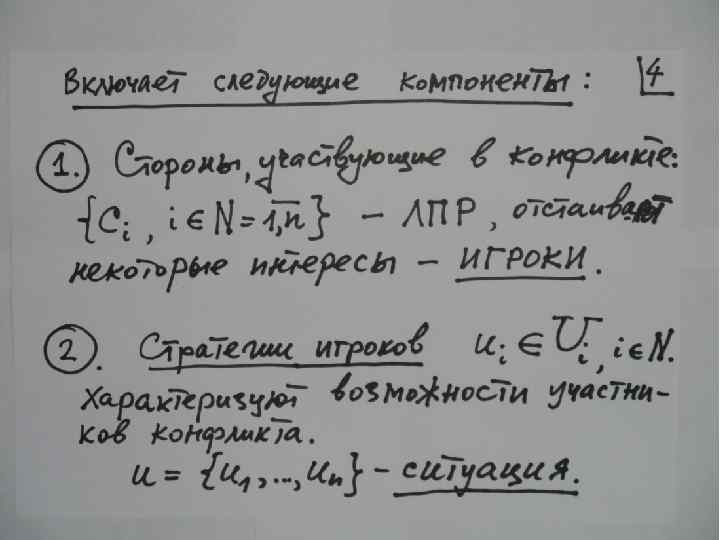 Включает следующие компоненты: 4
1. Стороны, участвующие в конфликте:
{Ci, i ∈ N = 1,n̅} – ЛПР, отстаивают
некоторые интересы – ИГРОКИ.
2. Стратегии игроков ui ∈ Ui, i ∈ N.
Характеризуют возможности участни-
ков конфликта.
u = {u1, ..., un} – ситуация.